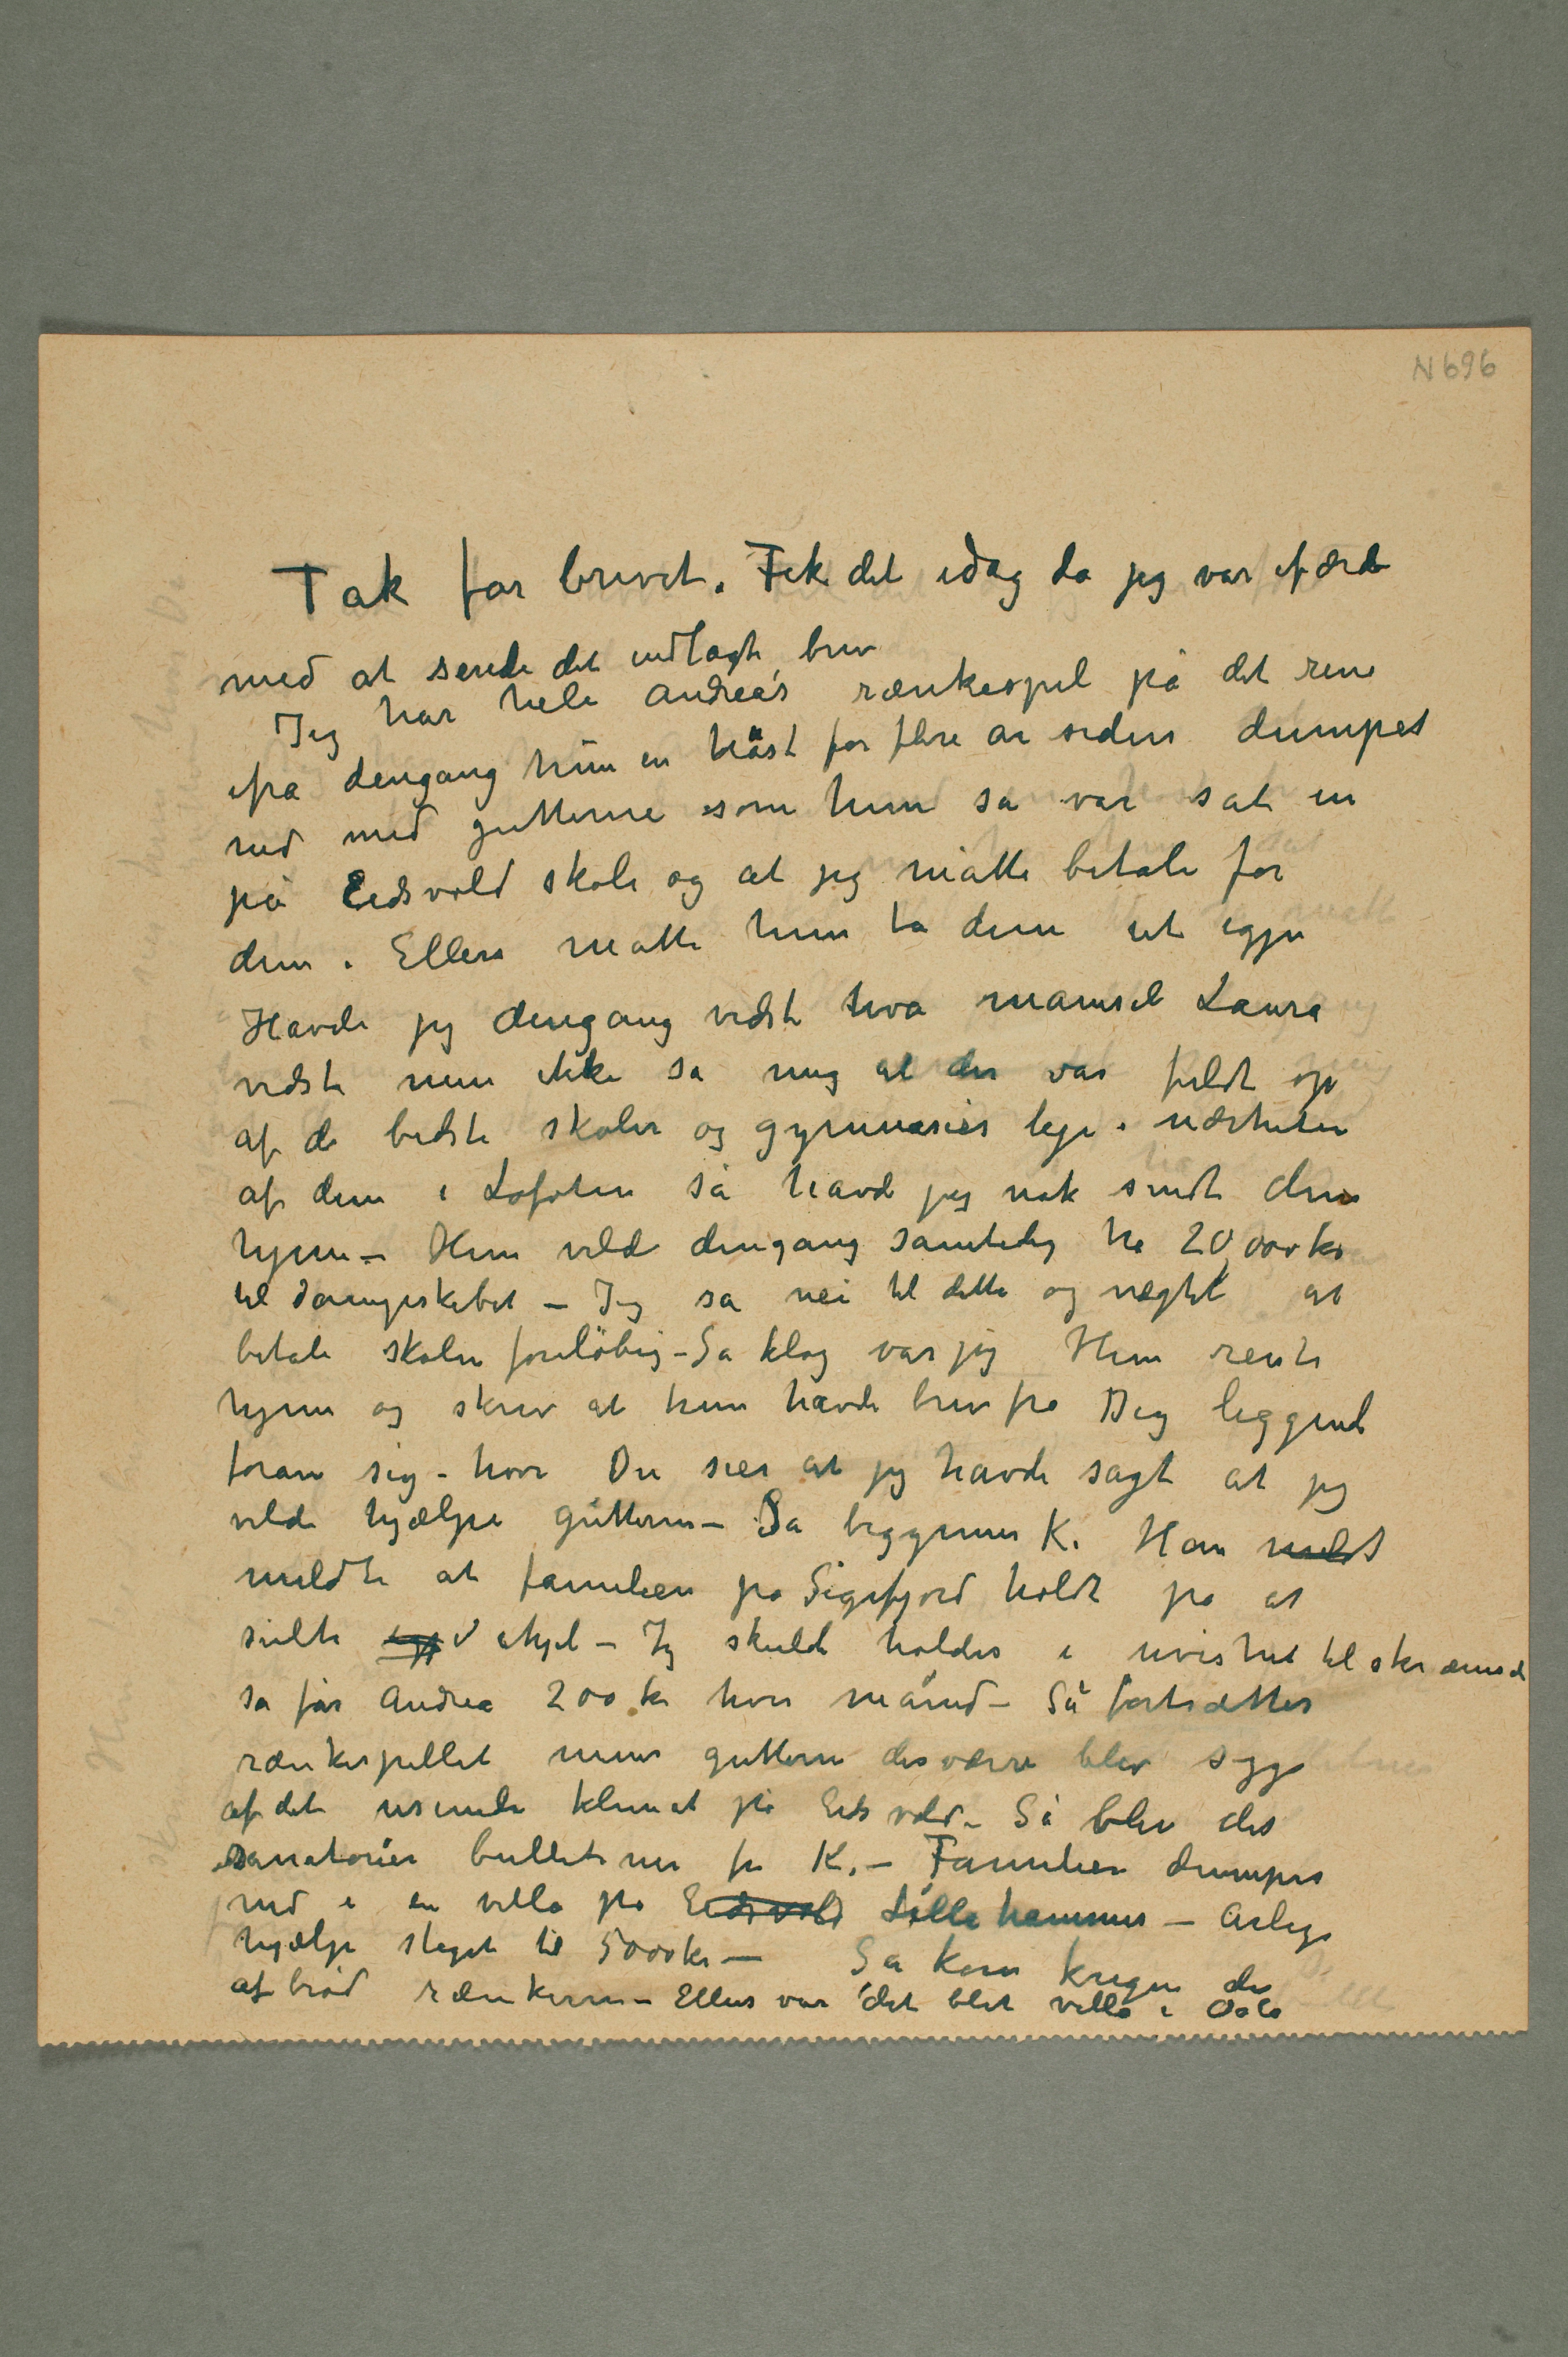 N 696
Tak for brevet. Fik det idag da jeg var ifærd
med at sende det indlagte brev
Jeg har hele Andrea's rænkespil på det rene
ifra dengang hun en høst for flere år siden dumpet
ned med gutterne som hun sa var sat in
på Eidsvold skole og at jeg måtte betale for
dem. Ellers måtte hun ta dem ut igjen
Havde jeg dengang vidst hva mamsel Laura
vidste men ikke sa mig at der var fuldt op
af de bedste skoler og gymnasier lige i nærheten
af dem i Lofoten så havde jeg nok sendt dem
hjem – Hun vilde dengang samtidig ha 20,000 kr
til dampskibet – Jeg sa nei til dette og nægtet at
betale skolen foreløbig – Så klog var jeg Hun reiste
hjem og skrev at hun havde brev fra Dig liggende
foran sig – hvor Du sier at jeg havde sagt at jeg
vilde hjælpe gutterne – Så begynner K. Han meldt
meldte at familien på Sigefjord holdt på at
sulte ihjel – Jeg skulde holdes i uvished til skræmsel
så får Andrea 200 kr hver måned – Så fortsætter
rænkespillet mens gutterne desværre blev syge
af det usunde klimat på Eidsvold – Så blev det
sanatorier bulletiner fra K. – Familien dumper
ned i en villa på Eidsvold Lillehammer – Årlige
hjælpe steget til 5000 kr – Så kom krigen der
afbrød rænkerne – Ellers var det blit villa i Oslo